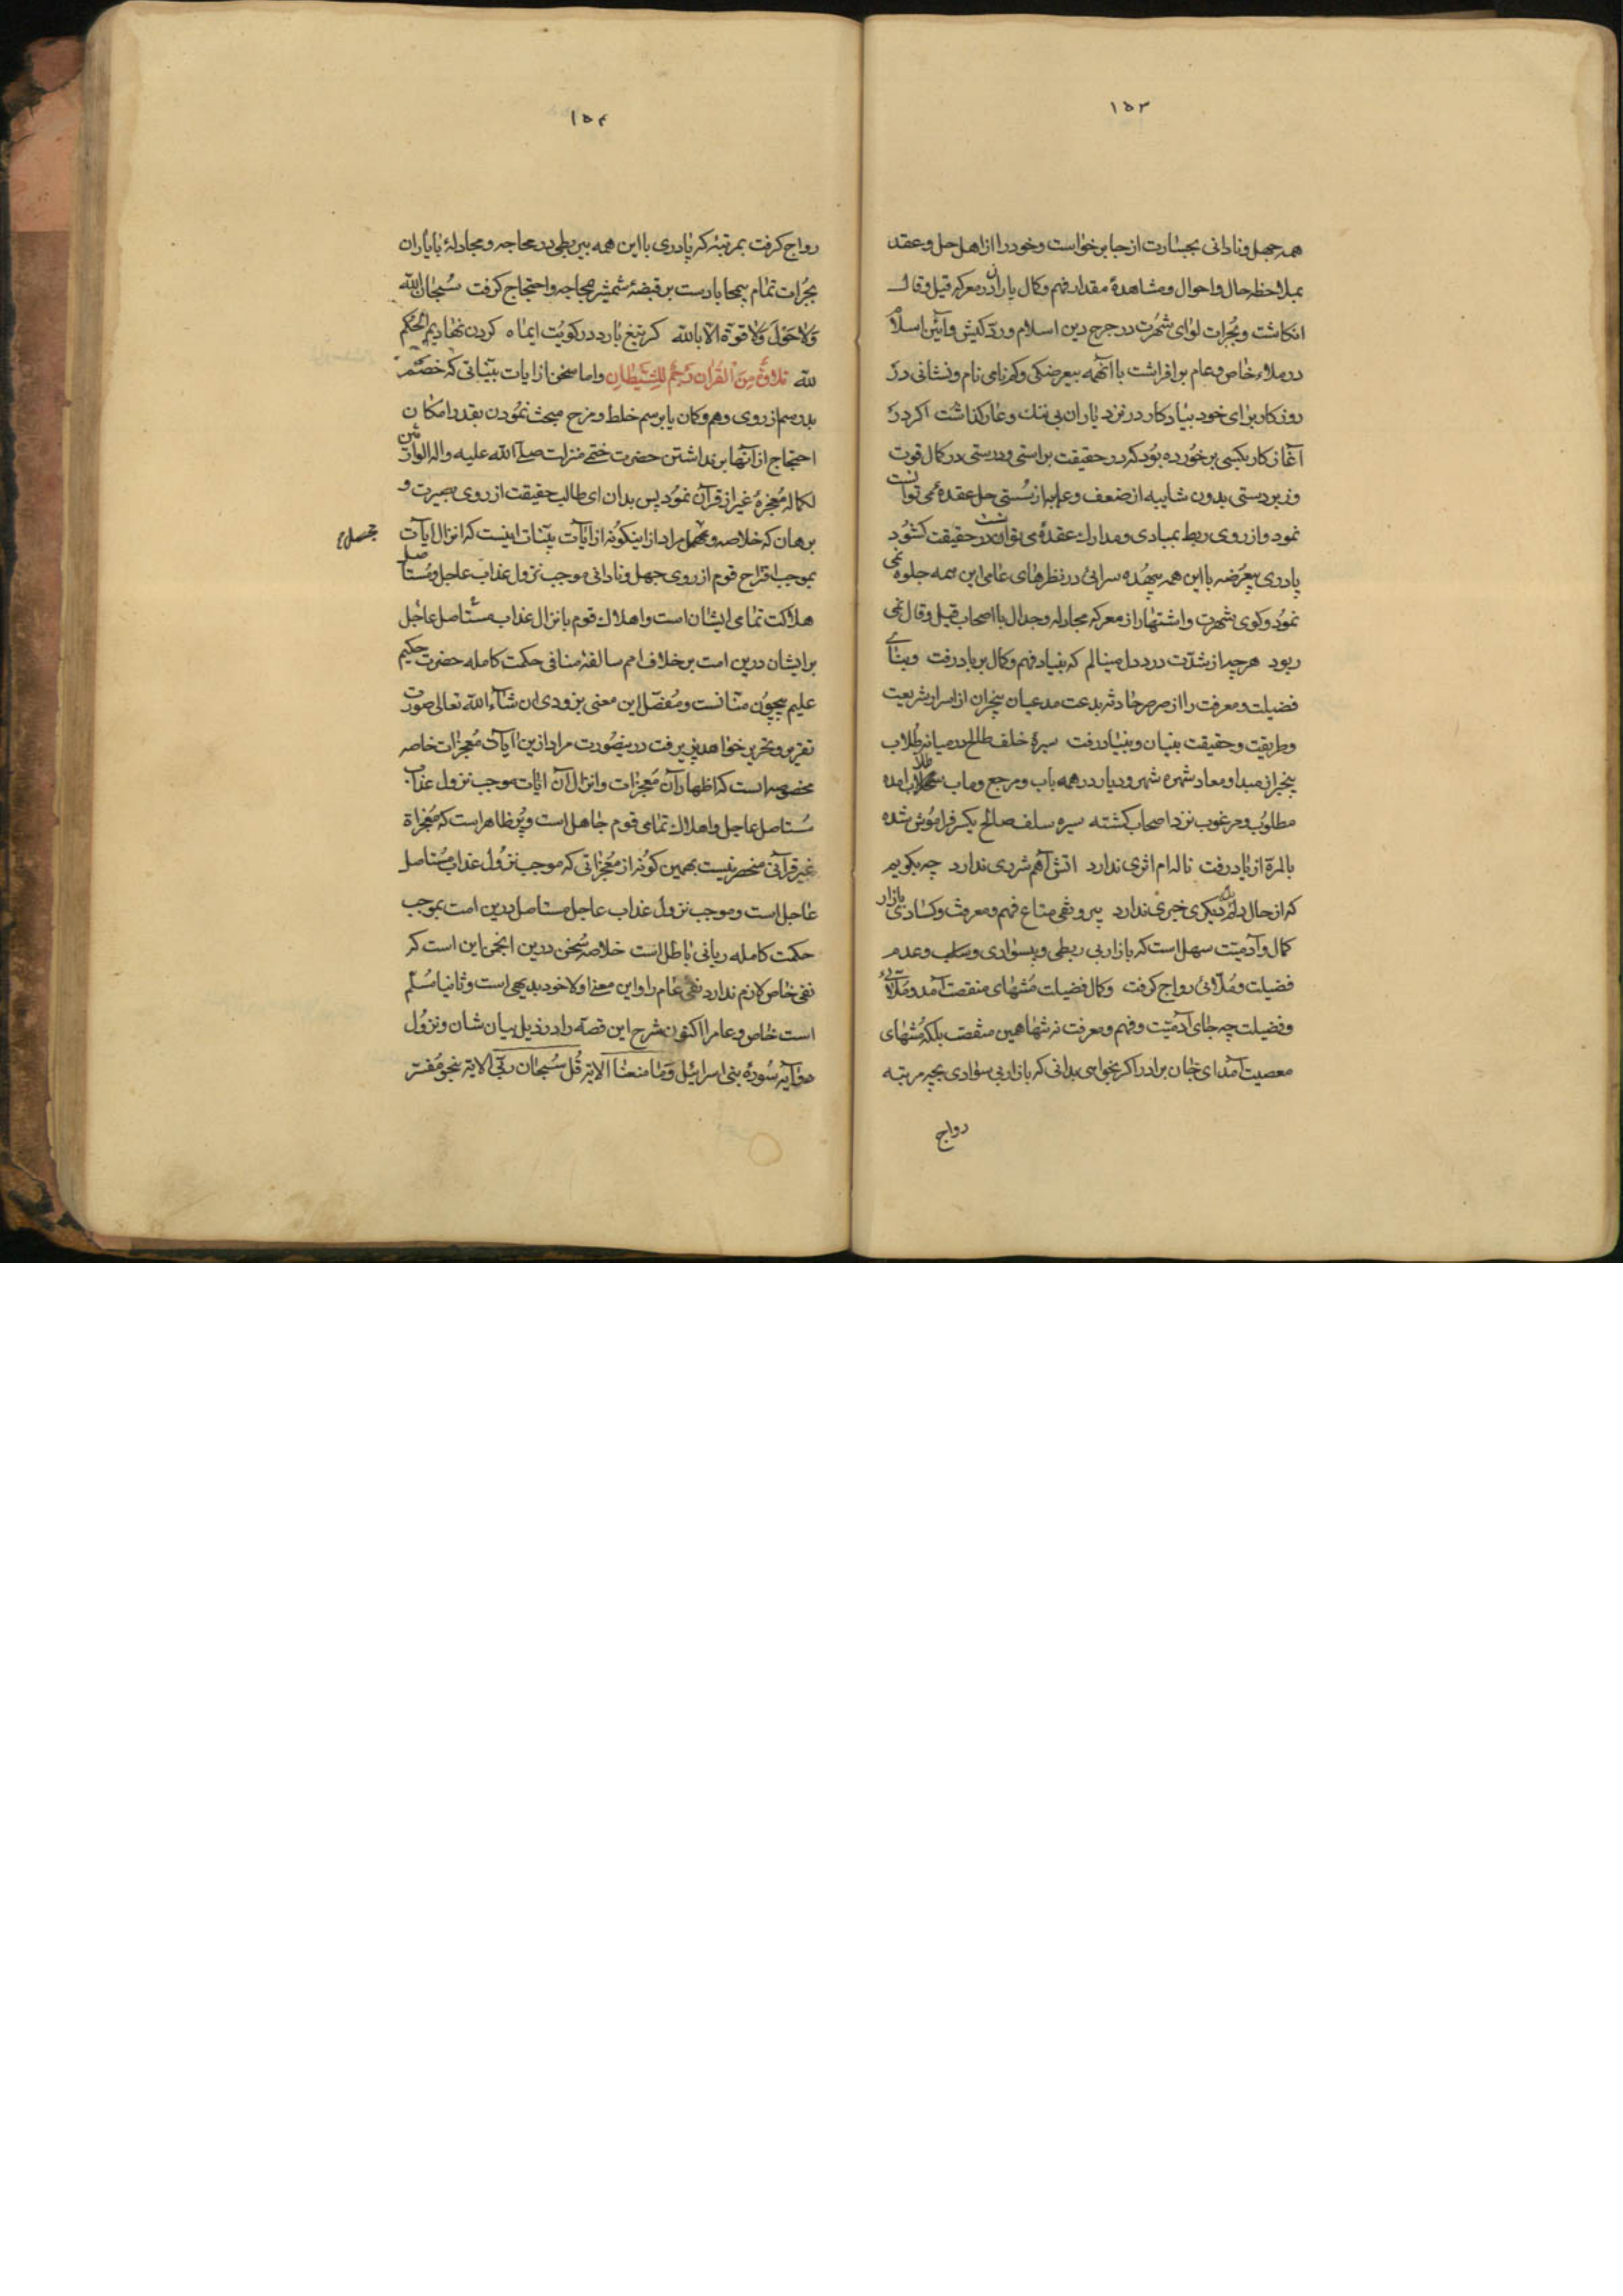 ١٥٣
همه جهل و نادانی بجسارت از جا برخواست و خود را از اهل حل و عقد
بملاحظه حال و احوال و مشاهدهٔ مقدار فهم و کمال یاران در معرکه قیل و قال
انکاشت و بجرات لوای شهرت در جرح دین اسلام و رد کیش و آئین اسلام
در ملاء خاص و عام برافراشت با آنهمه بیعرضکی و کم نامی نام و نشانی در
روزکار برای خود بنیاد کار در نزد یاران بی ننك و عار کذاشت اکر در
آغاز کار بکسی برخورده بود که در حقیقت براستی و درستی در کمال قوت
و زبردستی بدون شایبه از ضعف و از سستی حل عقدهٔ می توانست
نمود و از روی ربط بمبادی و مدارك عقدهٔ می توانست در حقیقت کشود
پادری بیعرضه با این همه بیهده سرائی در نظرهای عامی این همه جلوه نمی
نمود و کوی شهرت و اشتهار از معرکه مجادله و جدال با اصحاب قیل و قال نمی
ربود هرچه از شدت درد دل مینالم که بنیاد فهم و کمال بر باد رفت و بنای
فضیلت و معرفت را از صرصر حادثه بدعت مدعیان بیخبران از اسرار شریعت
و طریقت و حقیقت بنیان و بنیاد رفت سیرهٔ خلف طالح در میانه طلاب
بیخبر از مبدا و معاد شهره شهر و دیار در همه باب و مرجع و ماب امده
مطلوب و مرغوب نزد اصحاب کشته سیره سلف صالح یکسر فراموش شده
بالمرة از یاد رفت ناله ام اثری ندارد اتش آهم شرری ندارد چه بکویم
که از حال دلم دیکری خبری ندارد بیرونقی متاع فهم و معرفت و کسادی بازار
کمال و آدمیت سهل است که بازار بی ربطی و بیسوادی و و عدم
فضیلت و ملائی رواج کرفت و کمال فضیلت منشهای منقصت آمد و ملائی
و فضیلت چه جای آدمیت و فهم و معرفت نه تنها همین منقصت بلکه منتهای
معصیت آمد ای جان برادر اکر بخواهی بدانی که بازار بی سوادی بچه مرتبه
رواج
١٥٤
رواج کرفت بمرتبهٔ که پادری با این همه بیربطی در محاجه و مجادلهٔ با یاران
بجرات تمام بیمحابا دست بر قبضهٔ شمشیر محاجه و احتجاج کرفت سبحان الله
ولا حول ولا قوة الا بالله که تیغ بارد در کویت ایماه کردن نهادیم الحکم
لله تلاوة من القران رجم للشیطان و اما سخن از ایات بیناتی که خصم
بدرسم از روی وهم و کمان یا برسم خلط و مزح مبحث نمودن بقدر امکان
احتجاج از آنها بر نداشتن حضرت ختمی منزلت صلی الله علیه واله الوارثین
لکماله معجزهٔ غیر از قرآن نمود پس بدان ای طالب حقیقت از روی بصیرت و
برهان که خلاصه و محمل مراد از اینکونه از ایات بینات اینست که انزال ایات
بموجب اقتراح قوم از روی جهل و نادانی موجب نزول عذاب عاجل و مستاصل
هلاکت تمامی ایشان است و اهلاك قوم بانزال عذاب مستاصل عاجل
بر ایشان درین امت بر خلاف امم سالفه منافی حکمت کامله حضرت حکیم
علیم بیچون منانست و مفصل این معنی بزودی ان شاء الله تعالی صورت
تقریر و تحریر خواهد پذیرفت درینصورت مراد ازین ایات معجزات خاصه
مخصوصه است که اظهار آن معجزات و انزال آن ایات موجب نزول عذاب
مستاصل عاجل و اهلاك تمامی قوم جاهل است و پر ظاهر است که معجزاة
غیر قرآنی منحصر نیست بهمین کونه از معجزاتی که موجب نزول عذاب مستاصل
عاجل است و موجب نزول عذاب عاجل مستاصل درین امت بموجب
حکمت کامله ربانی باطل است خلاصه سخن درین انجمن این است که
نفی خاص لازم ندارد نفی عام را و این معنی اولا خود بدیهی است و ثانیا مسلم
است خاص و عام را اکنون شرح این قصه را در ذیل بیان شان و نزول
دو آیه سورهٔ بنی اسرائیل وما منعنا الایة قل سبحان ربی الایة بنحو مفسر